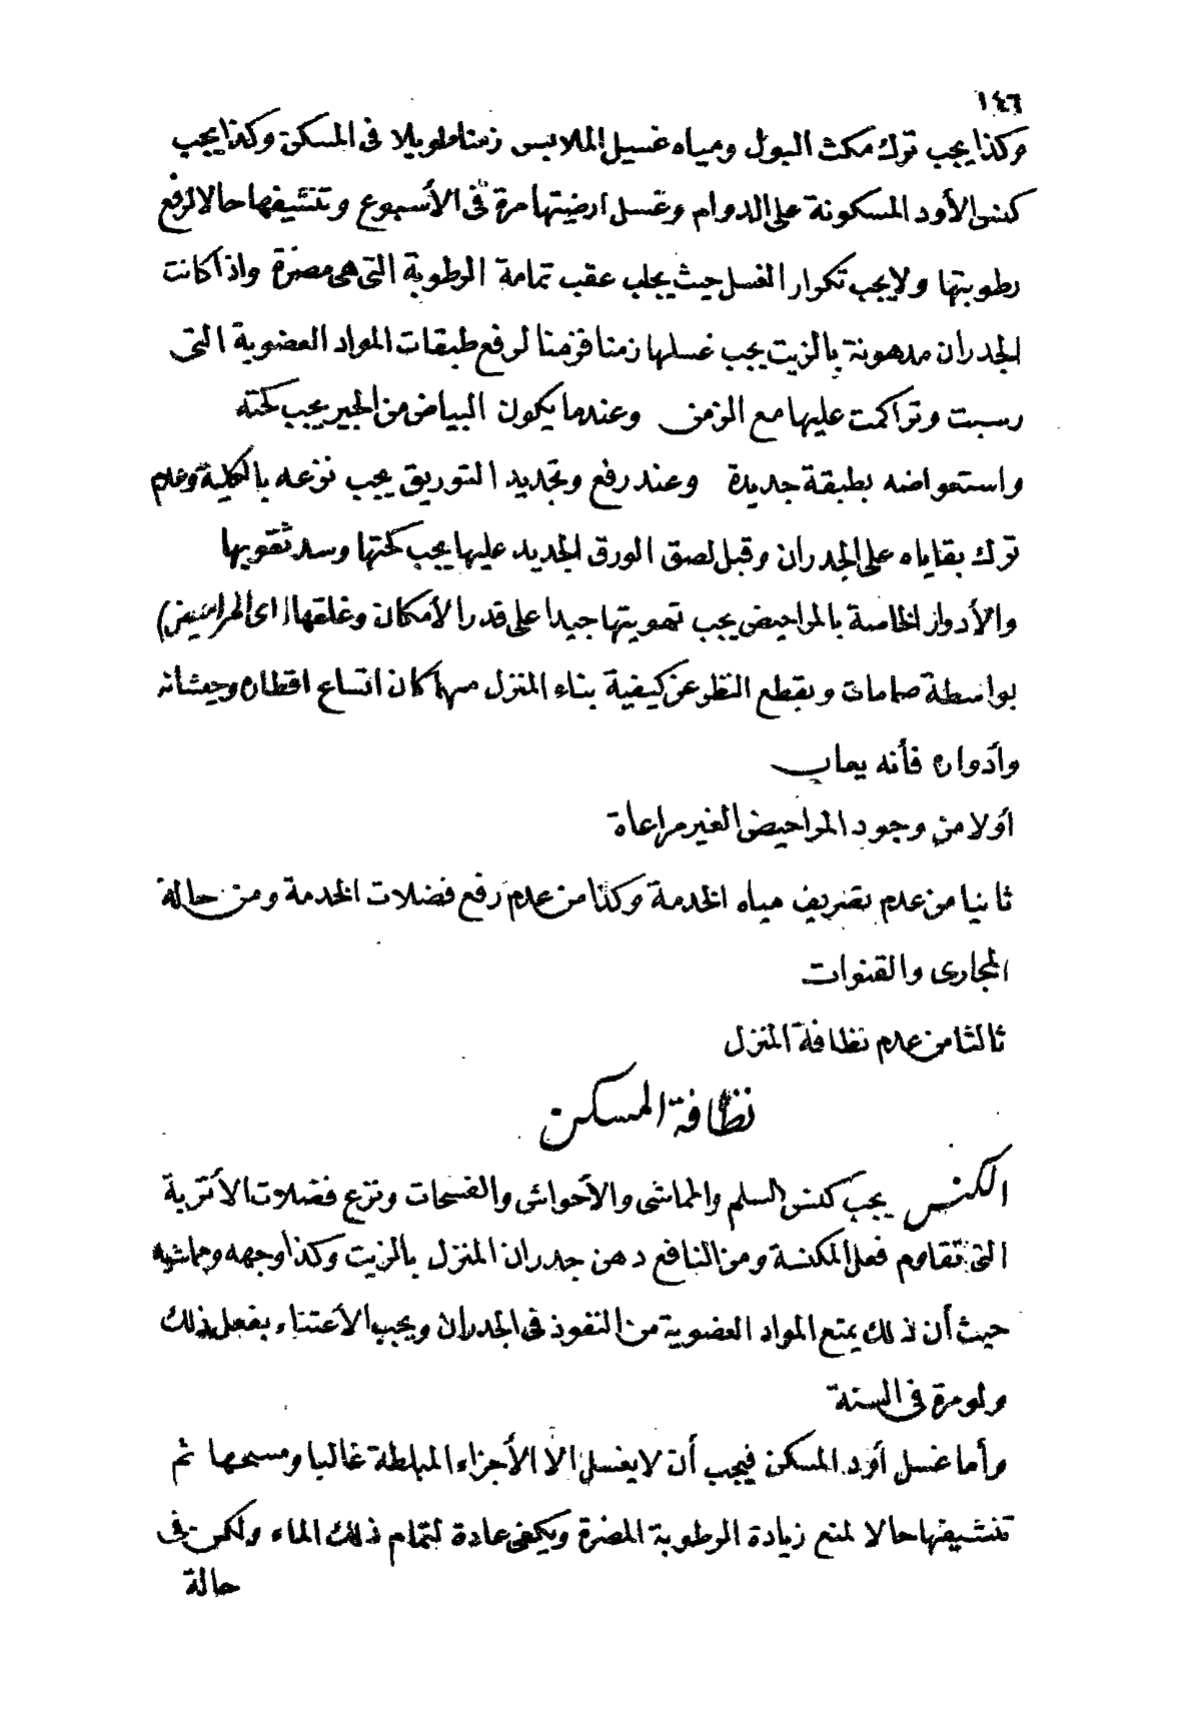 ١٤٦
وكذا يجب ترك مكث البول ومياه غسيل الملابس زمنا طويلا فى المسكن وكذا يجب
كنس الأود المسكونة على الدوام وغسل ارضيتها مرة فى الأسبوع وتنشيفها حالا لرفع
رطوبتها ولا يجب تكرار الغسل حيث يجلب عقب تمامه الرطوبة التى هى مضرة واذا كانت
الجدران مدهونة بالزيت يجب غسلها زمنا فزمنا لرفع طبقات المواد العضوية التى
رسبت وتراكمت عليها مع الزمن وعندما يكون البياض من الجير يجب كحته
واستعواضه بطبقة جديدة وعند رفع وتجديد التوريق يجب نزعه بالكلية وعدم
ترك بقاياه على الجدران وقبل لصق الورق الجديد عليها يجب كحتها وسد ثقوبها
والأدوار الخاصة بالمراحيض يجب تهويتها جيدا على قدر الأمكان وغلقها (اى المراحيض)
بواسطة صمامات وبقطع النظر عن كيفية بناء المنزل مهما كان اتساع اقطاره وحيشانه
وأدواره فأنه يعاب
أولا من وجود المراحيض الغير مراعاة
ثانيا من عدم تصريف مياه الخدمة وكذا من عدم رفع فضلات الخدمة ومن حالة
المجارى والقنوات
ثالثا من عدم نظافة المنزل
نظافة المسكن
الكنس يجب كنس السلم والمماشى والأحواش والفسحات ونزع فضلات الأتربة
التى تقاوم فعل المكنسة ومن النافع دهن جدران المنزل بالزيت وكذا وجهه ومماشيه
حيث أن ذلك يمنع المواد العضوية من النفوذ فى الجدران ويجب الأعتناء بفعل ذلك
ولو مرة فى السنة
وأما غسل أود المسكن فيجب أن لا يغسل الا الأجزاء المبلطة غالبا ومسحها ثم
تنشيفها حالا لمنع زيادة الرطوبة المضرة ويكفى عادة لتمام ذلك الماء ولكن فى
حالة